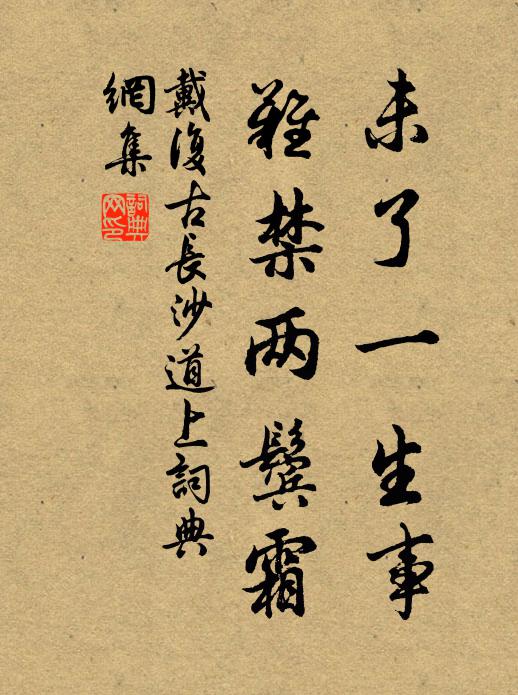 未了一生事
難禁两鬓霜
戴復古長沙道上詞典
網集
詞典网印